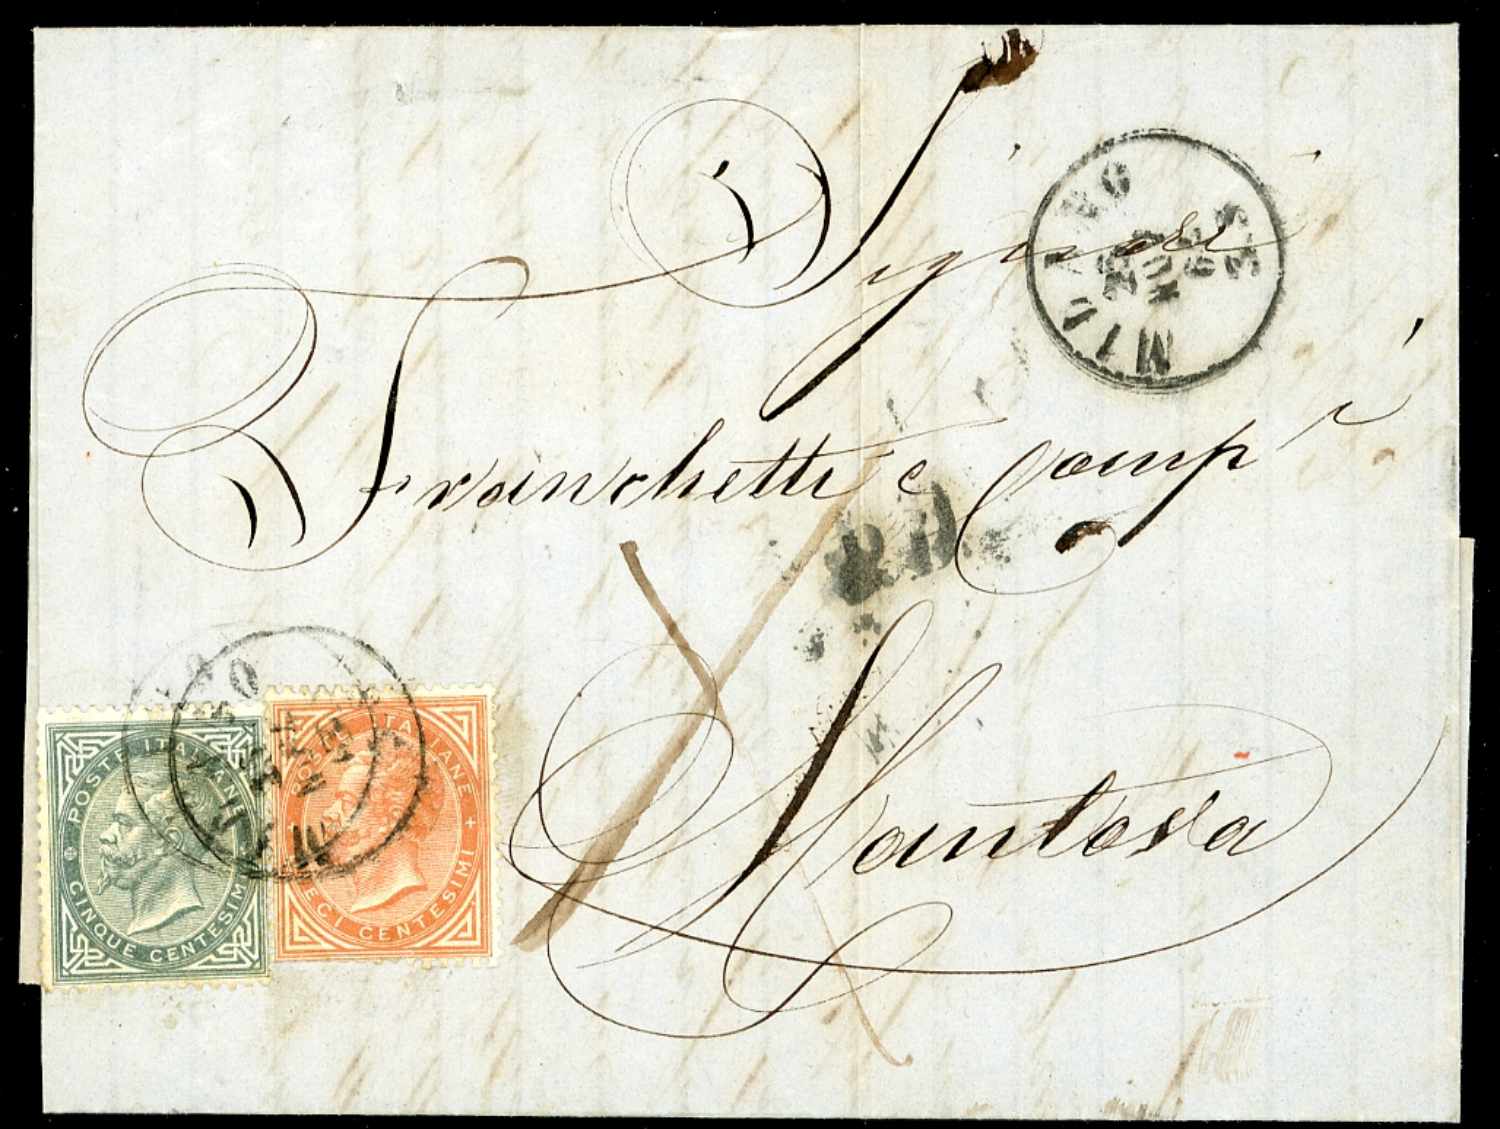 Signori
Franchetti e Comp.i
Mantova
MILANO
POSTE ITALIANE
CINQUE CENTESIMI
POSTE ITALIANE
DIECI CENTESIMI